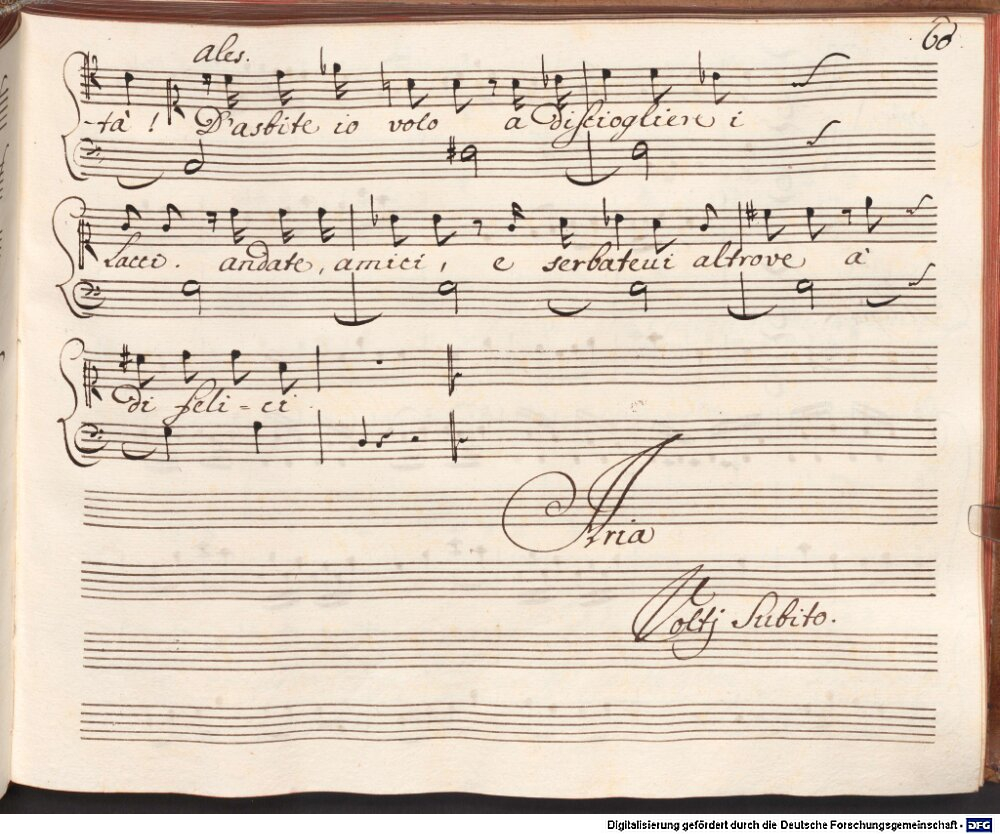 68.
ales.
-tà! D'asbite io volo a disciogliere i
Lacci. andate, amici, e serbateui altrove à
di feli=ci.
Aria
Volti Subito.
Digitalisierung gefördert durch die Deutsche Forschungsgemeinschaft - DFG